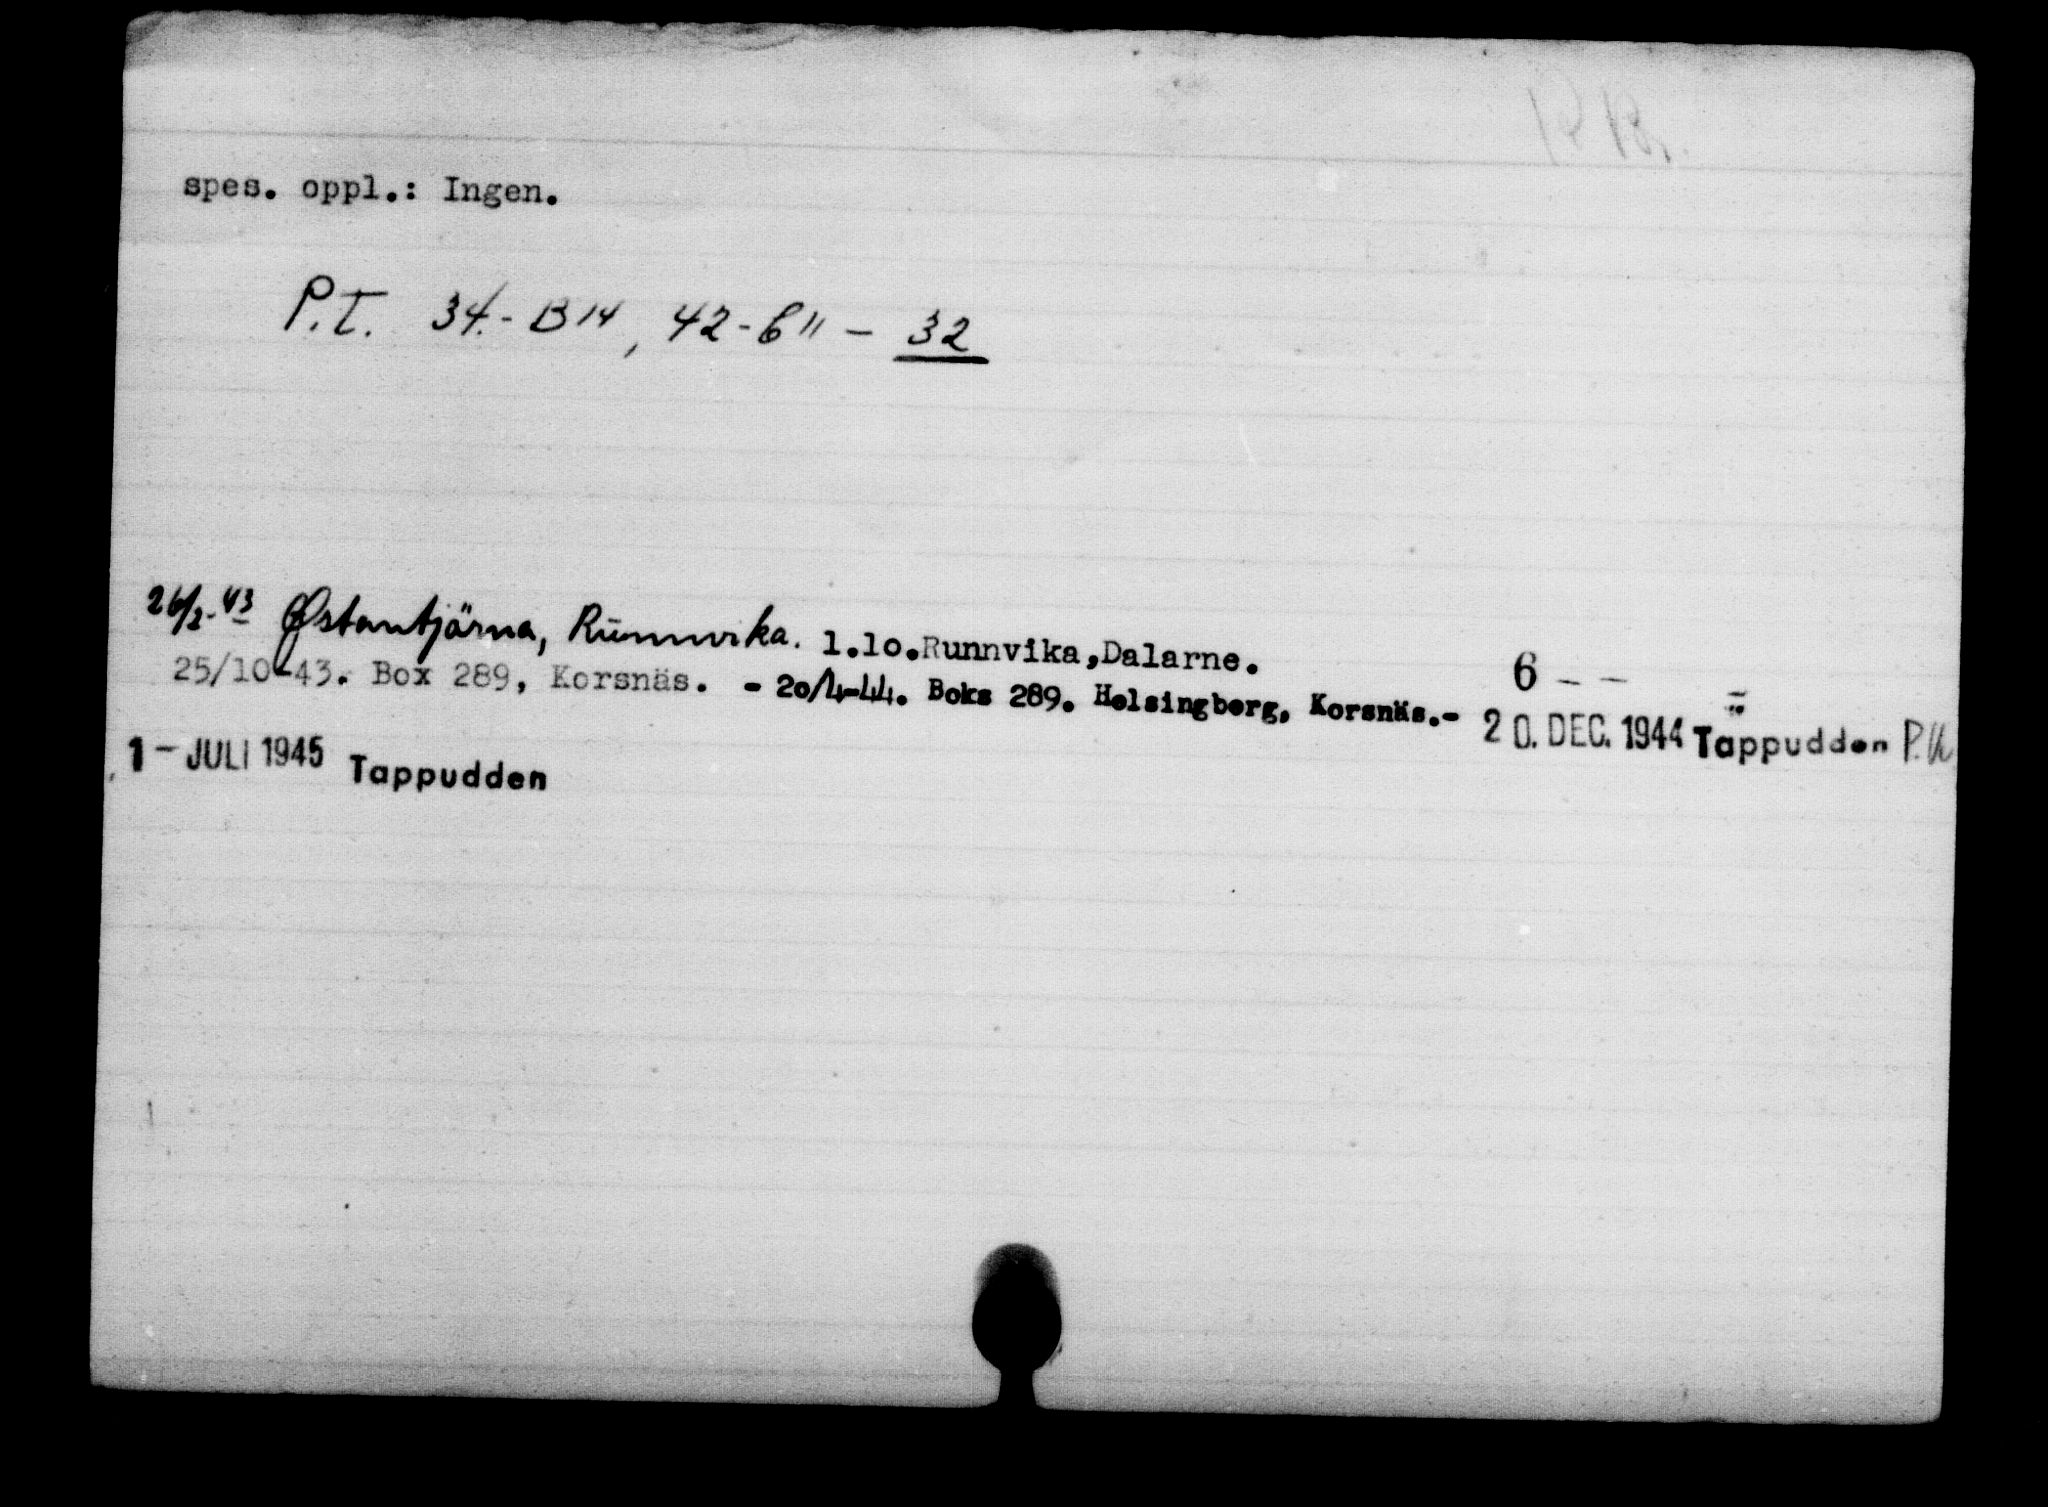 spes. oppl.: Ingen.
P.T. 34.- B14, 42-6" - 32
26/2-43 Østantjärna, Runnvika. 1.10.Runnvika,Dalarne.
6 - - "
25/10-43. Box 289, Korsnäs. - 20/4-44. Boks 289. Helsingberg, Korsnäs.- 20. DEC. 1944 Tappudden
1 - JULI 1945 Tappudden